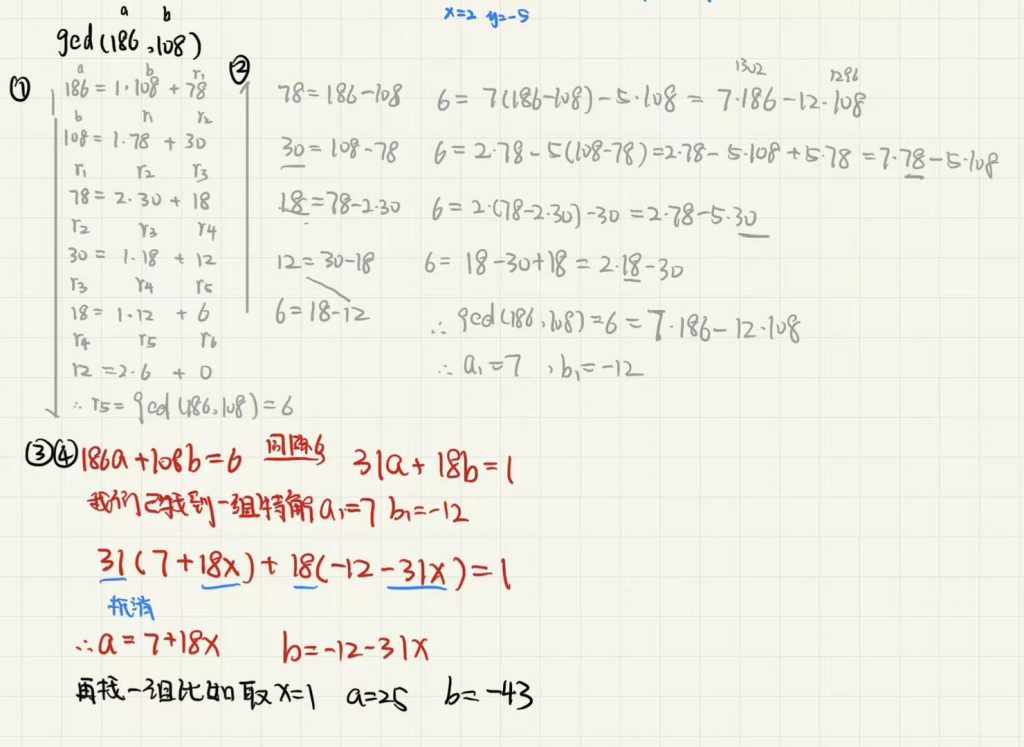 x=2 y=-5
a b
gcd(186,108)
①
a b r₁
186=1·108+78
b n r₂
108=1·78+30
r₁ r₂ r₃
78=2·30+18
r₂ r₃ r₄
30=1·18+12
r₃ r₄ r₅
18=1·12+6
r₄ r₅ r₆
12=2·6+0
∴r₅=gcd(186,108)=6
②
1302 1296
78=186-108 6=7(186-108)-5·108=7·186-12·108
30=108-78 6=2·78-5(108-78)=2·78-5·108+5·78=7·78-5·108
18=78-2·30 6=2·(78-2·30)-30=2·78-5·30
12=30-18 6=18-30+18=2·18-30
6=18-12
∴gcd(186,108)=6=7·186-12·108
∴a₁=7,b₁=-12
③④186a+108b=6 同除6 31a+18b=1
我们已找到一组特解a₁=7 b₁=-12
31(7+18x)+18(-12-31x)=1
抵消
∴a=7+18x b=-12-31x
再找一组比如取x=1 a=25 b=-43